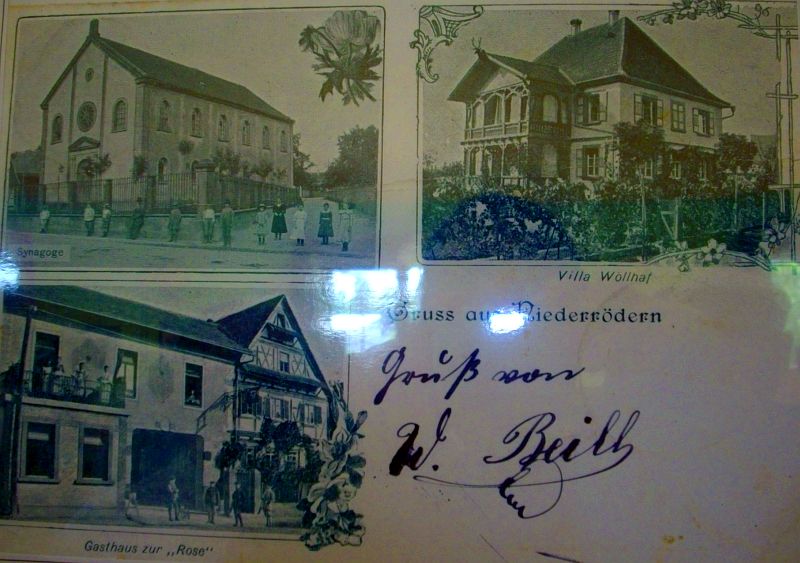 Synagoge
Villa Wöllhaf
Gruss aus Niederrödern
Gruß von
W. Beill
Gasthaus zur „Rose"